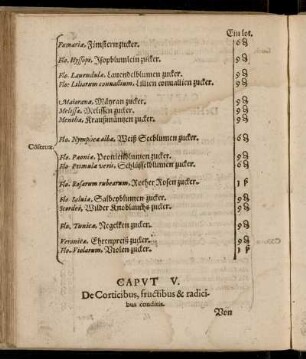 Ein lot.
Fumariæ, Finsternzucker. 6 ϑ
Flo. Hyssopi, Isopblumlein zucker. 9 ϑ
Flo. Lauendulæ, Lauendelblumen zucker. 9 ϑ
Flo. Liliorum conuallium, Lilien conuallien zucker. 9 ϑ
Maioranæ, Mayran zucker. 9 ϑ
Melissæ, Melissen zucker. 9 ϑ
Menthæ, Krausmüntzen zucker. 9 ϑ
Flo. Nympheæ albæ, Weiß Seeblumen zucker. 6 ϑ
Conseruæ
Flo. Pæoniæ, Peonienblumen zucker. 9 ϑ
Flo. Primulæ veris, Schlüsselblumen zucker. 6 ϑ
Flo. Rosarum rubearum, Rother Rosen zucker. 1 ß
Flo. Saluiæ, Salbeyblumen zucker. 9 ϑ
Scordei, Wilder Knoblauchs zucker. 9 ϑ
Flo. Tunicæ, Negelken zucker. 9 ϑ
Veronicæ, Ehrenpreis zucker. 9 ϑ
Flo. Violarum, Violen zucker. 1 ß
CAPVT V.
De Corticibus, fructibus & radici-
bus conditis.
Von